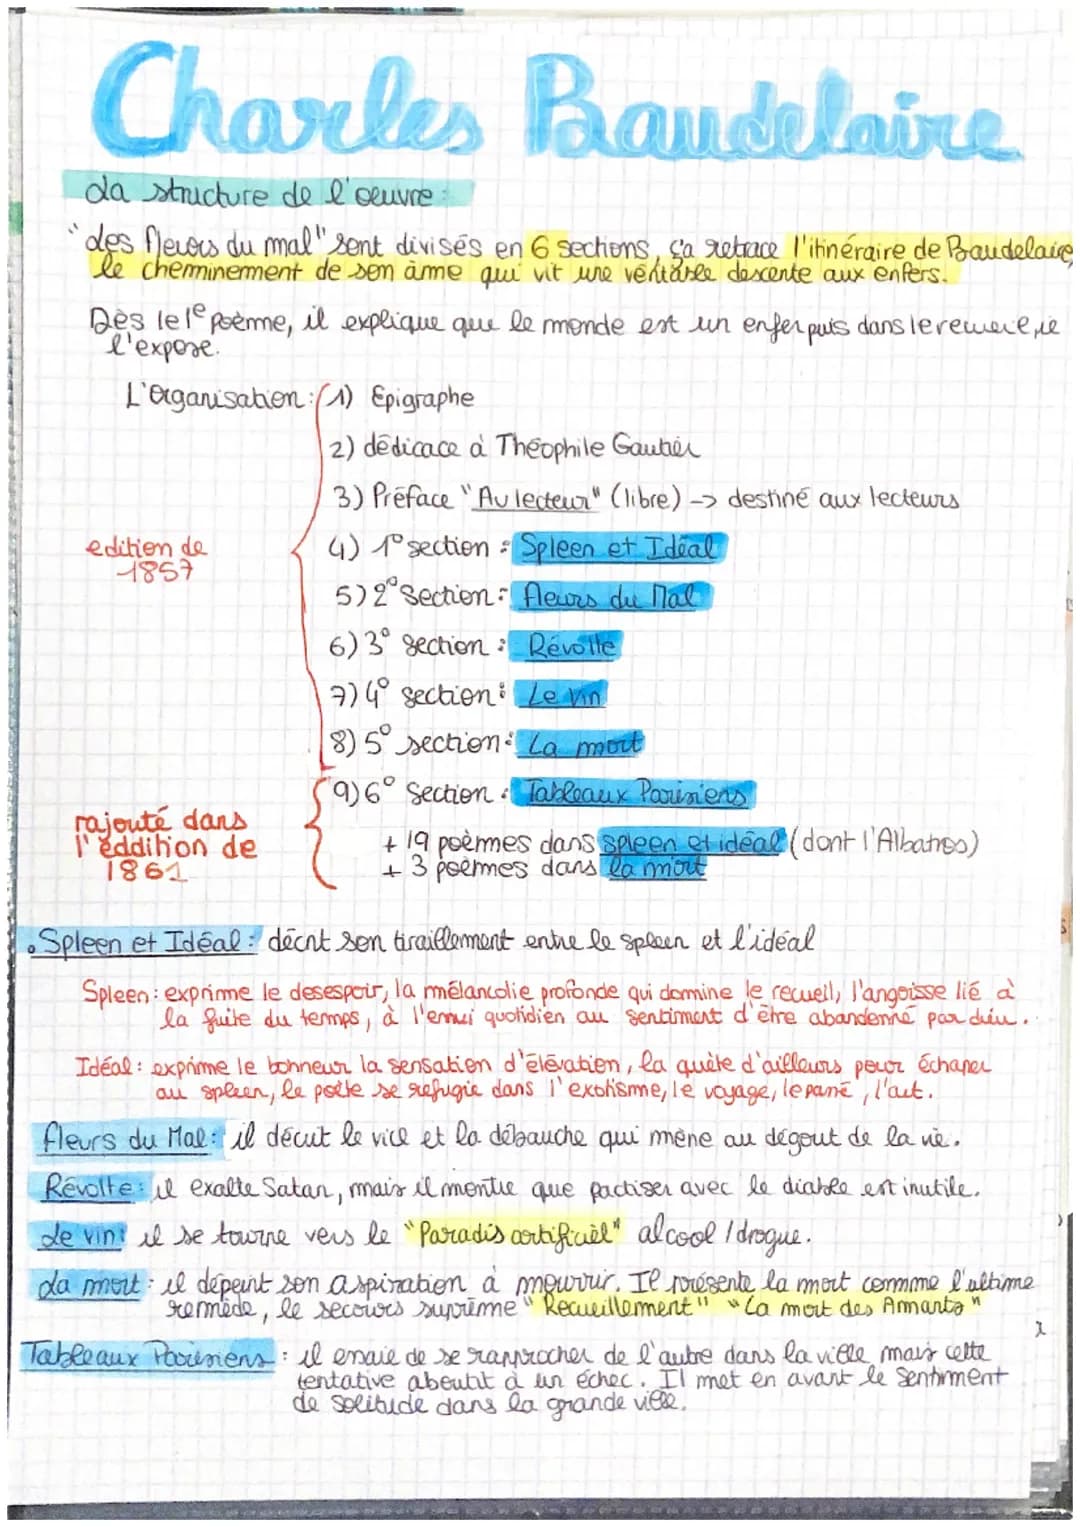 Charles Baudelaire
La structure de l'œuvre :
"Les fleurs du mal" sont divisés en 6 sections, ça retrace l'itinéraire de Baudelaire,
le cheminement de son âme qui vit une véritable descente aux enfers.
Dès le 1e poème, il explique que le monde est un enfer puis dans le recueil, il
l'expose.
L'Organisation : 1) Epigraphe
2) dédicace à Théophile Gautier
3) Préface "Au lecteur" (libre) -> destiné aux lecteurs
edition de
1857
4) 1° section : Spleen et Idéal
5) 2° Section : fleurs du Mal
6) 3° section : Révolte
7) 4° section : Le vin
8) 5° section : La mort
9) 6° Section : Tableaux Parisiens
rajouté dans
l'éddition de
1861
+ 19 poèmes dans spleen et idéal (dont l'Albatros)
+ 3 poèmes dans la mort
. Spleen et Idéal : décrit son tiraillement entre le spleen et l'idéal
Spleen : exprime le desespoir, la mélancolie profonde qui domine le recueil, l'angoisse lié à
la fuite du temps, à l'ennui quotidien au sentiment d'être abandonné par dieu.
Idéal : exprime le bonheur la sensation d'élévation, la quête d'ailleurs pour échaper
au spleen, le poète se refugie dans l'exotisme, le voyage, le passé, l'art.
fleurs du Mal : il décrit le vice et la débauche qui mène au dégout de la vie.
Révolte : il exalte Satan, mais il montre que pactiser avec le diable est inutile.
Le vin : il se tourne vers le "Paradis artificiel" alcool / drogue.
La mort : il dépeint son aspiration à mourrir. Il présente la mort comme l'ultime
remède, le secours suprême "Recueillement" "La mort des Amants"
Tableaux Parisiens : il essaie de se rapprocher de l'autre dans la ville mais cette
tentative aboutit à un échec. Il met en avant le sentiment
de solitude dans la grande ville.